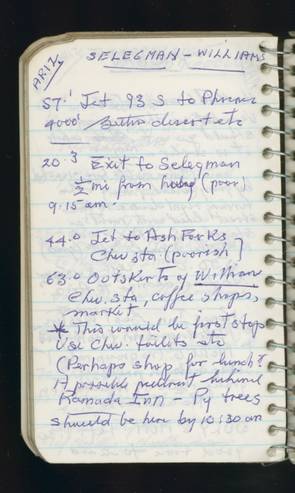 ARIZ
SELEGMAN - WILLIAMS
57.1 Jct 93 S to Phoenix
4000' desert etc
20.3 Exit to Selegman
½ mi from (poor)
9:15 am.
44.0 Jct to Ash Forks
Chev sta (poorish)
63.0 Outskirts of
Chev. sta, coffee shops,
market
* This would be first stop
Use Chev. toilets etc
(Perhaps shop for lunch?
A possible behind
Ramada Inn - Py trees
should be here by 10:30 am